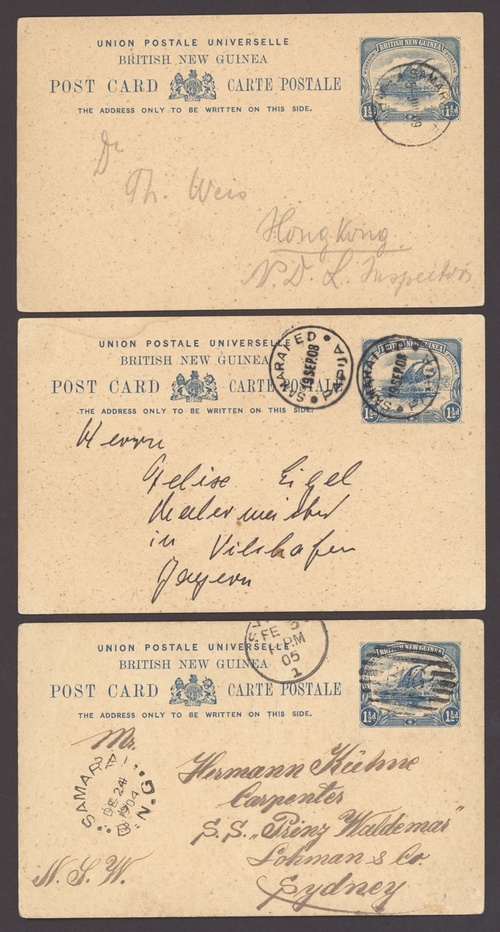 UNION POSTALE UNIVERSELLE
BRITISH NEW GUINEA
POST CARD CARTE POSTALE
THE ADDRESS ONLY TO BE WRITTEN ON THIS SIDE.
BRITISH NEW GUINEA
1½d 1½d
SAMARAI
Dr
Th. Weis
Hongkong
N. D. L. Inspector
UNION POSTALE UNIVERSELLE
BRITISH NEW GUINEA
POST CARD CARTE POSTALE
THE ADDRESS ONLY TO BE WRITTEN ON THIS SIDE.
SAMARAI ED PAPUA
19 SEP. 08
BRITISH NEW GUINEA
1½d 1½d
SAMARAI PAPUA
19 SEP 08
Herrn
Felix Eigel
Malermeister
in Vilshofen
Bayern
UNION POSTALE UNIVERSELLE
BRITISH NEW GUINEA
POST CARD CARTE POSTALE
THE ADDRESS ONLY TO BE WRITTEN ON THIS SIDE.
FE
PM
05
1
BRITISH NEW GUINEA
1½d 1½d
Mr.
SAMARAI B.N.G.
DE 24
1904
Hermann Kühne
Carpenter
S.S. „Prinz Waldemar"
Lohman & Co.
Sydney
N. S. W.